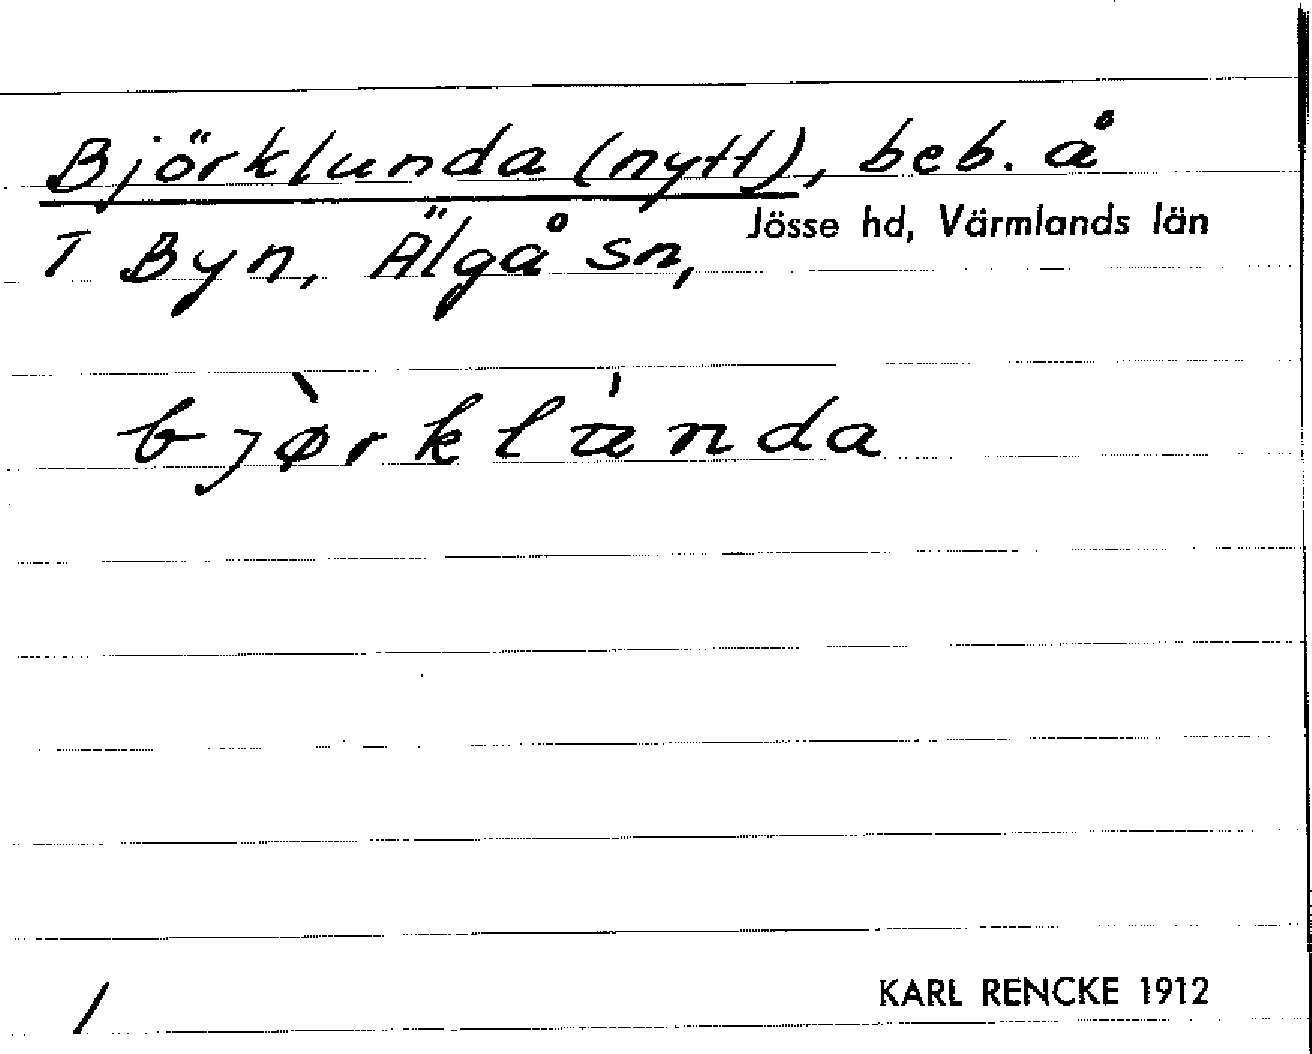 Björklunda (nytt), beb. å
T Byn, Älgå sn, Jösse hd, Värmlands län
bjø̀rklu̍nda
/ KARL RENCKE 1912